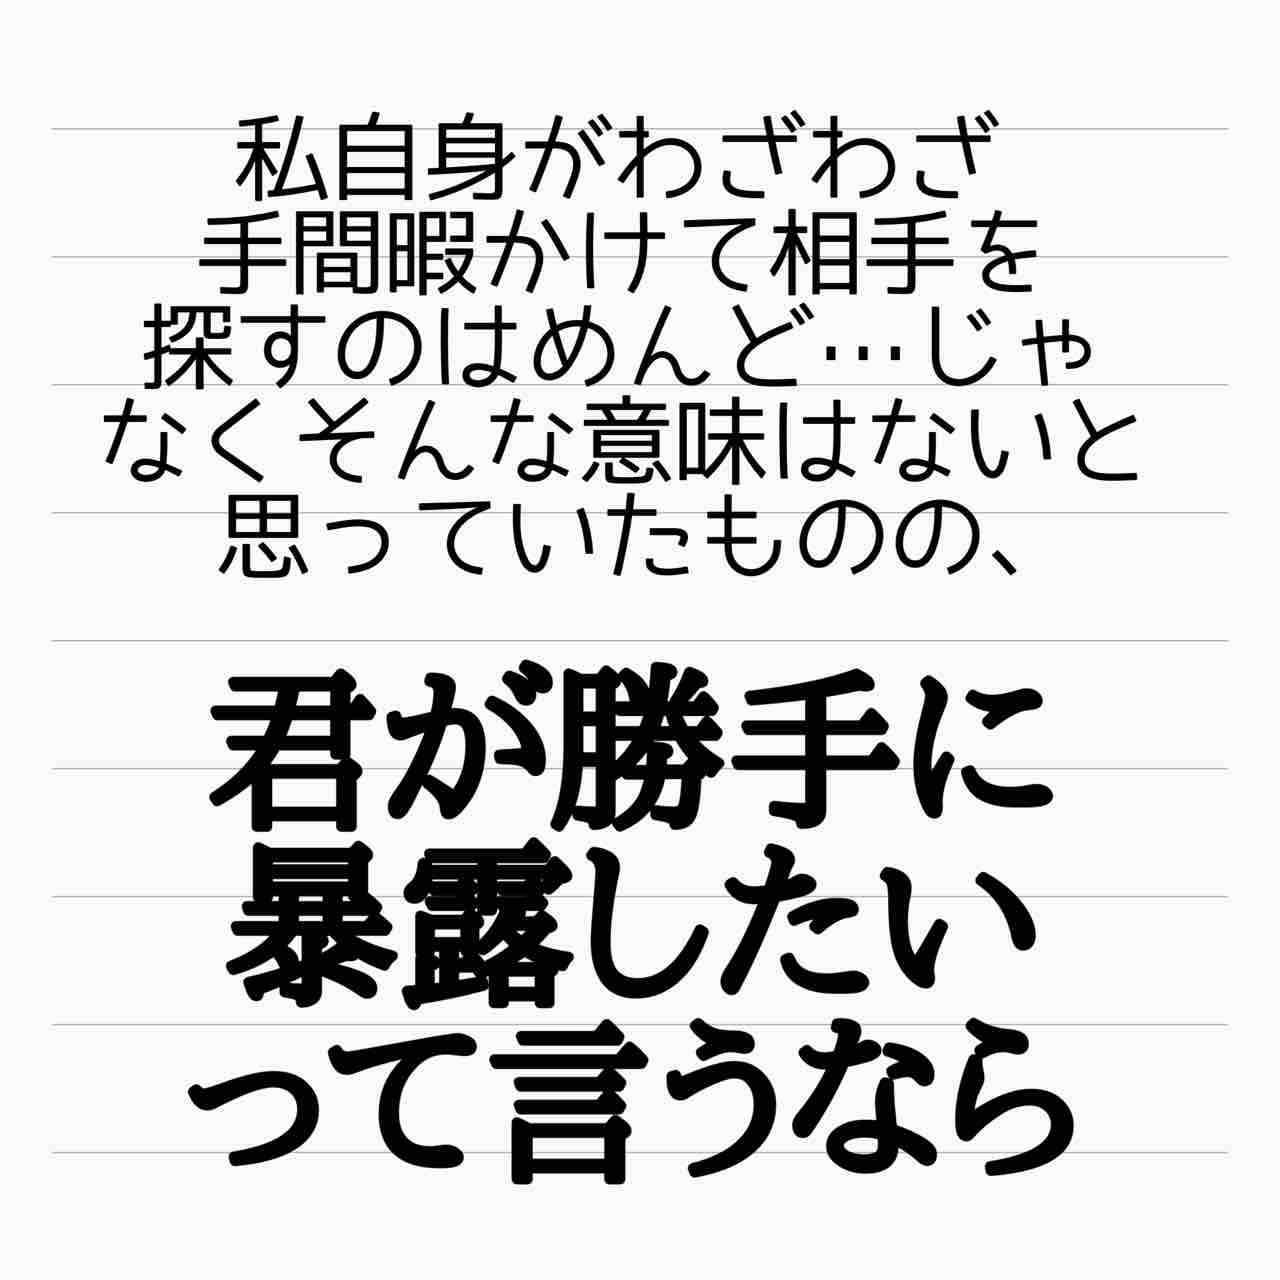 私自身がわざわざ
手間暇かけて相手を
探すのはめんど…じゃ
なくそんな意味はないと
思っていたものの、
君が勝手に
暴露したい
って言うなら